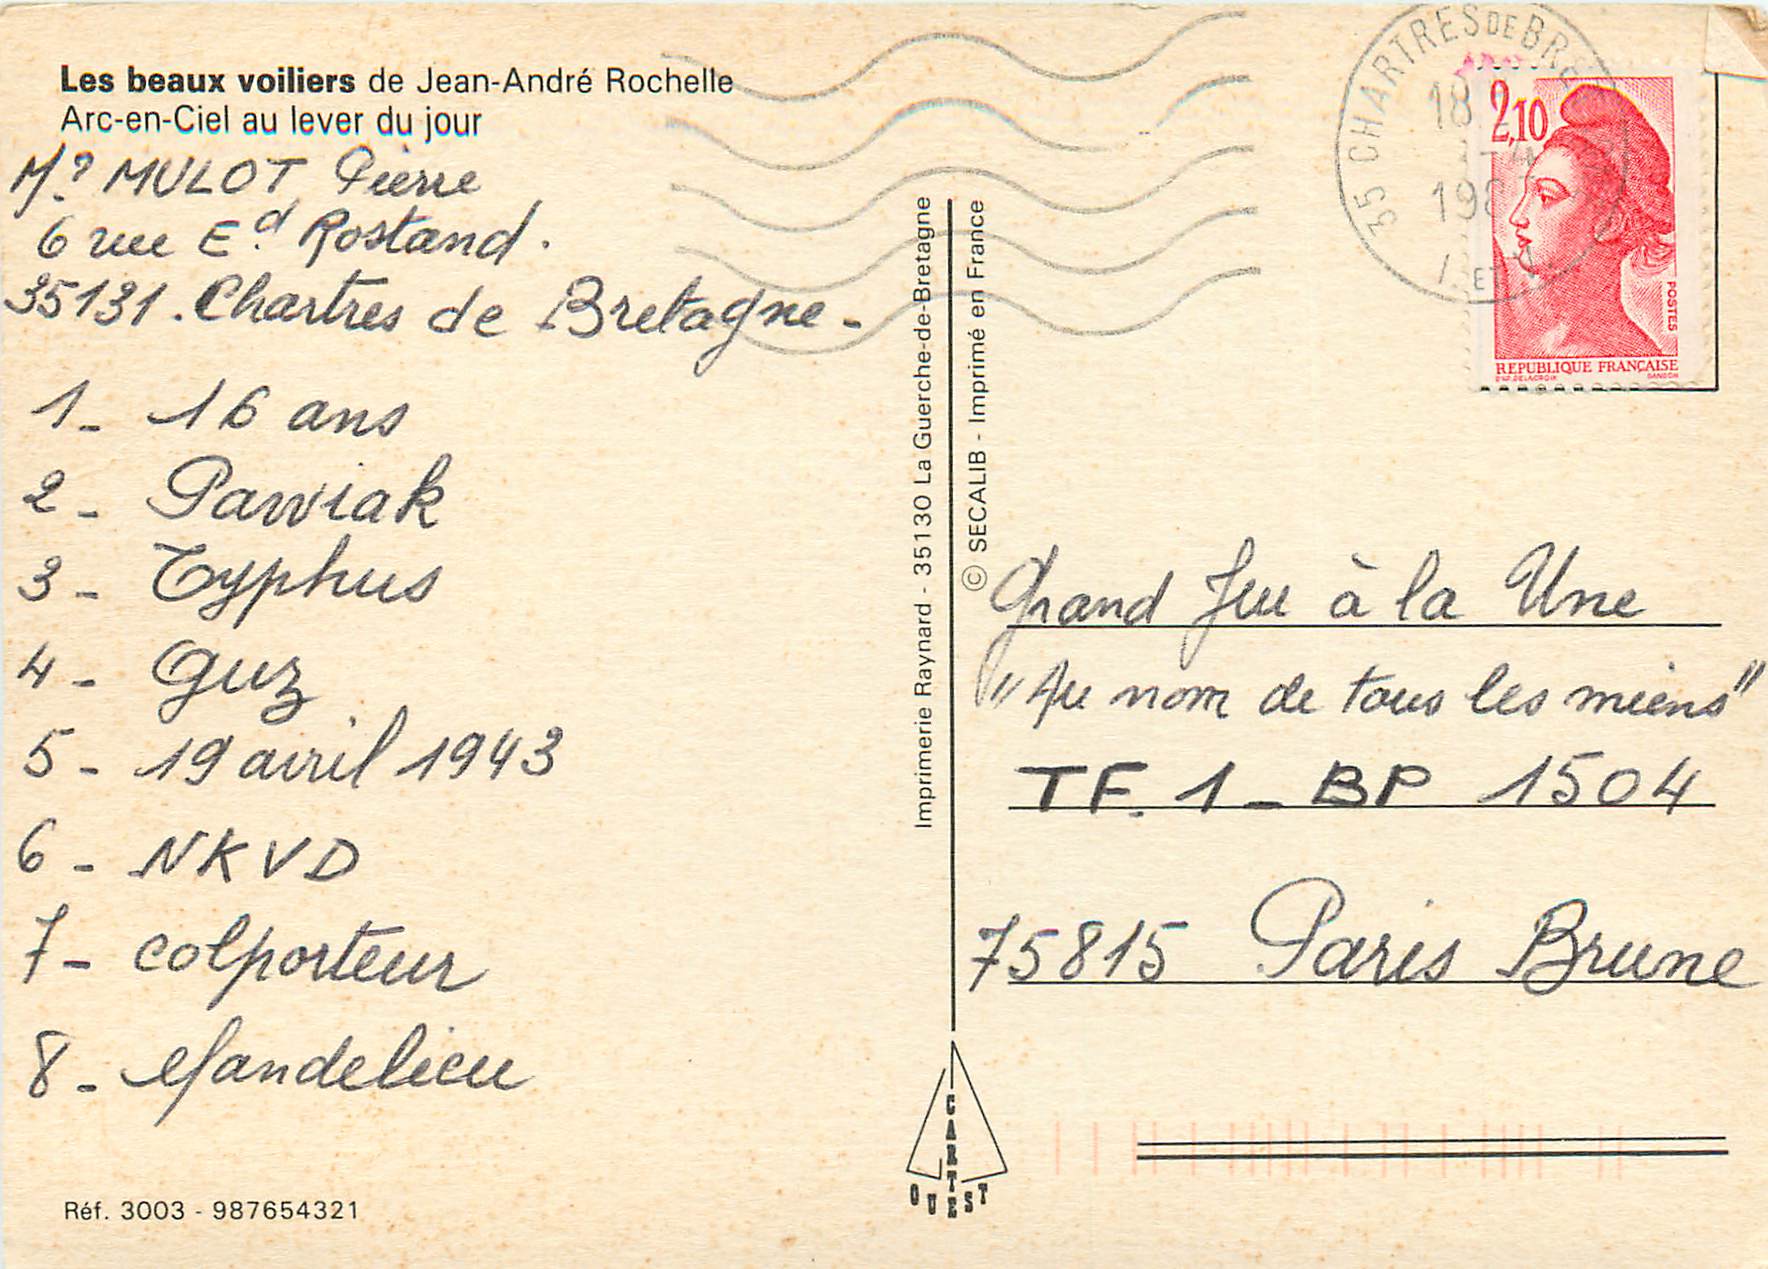 Les beaux voiliers de Jean-André Rochelle
Arc-en-Ciel au lever du jour
Mr MULOT Pierre
6 rue Ed Rostand.
35131. Chartres de Bretagne -
1- 16 ans
2- Pawiak
3- Typhus
4- Guz
5- 19 avril 1943
6- NKVD
7- colporteur
8- Mandelieu
Réf. 3003 - 987654321
Imprimerie Raynard - 35130 La Guerche-de-Bretagne
© SECALIB - Imprimé en France
CARTE
OUEST
35 CHARTRES DE BRE
18
198
I. ET V
2,10
POSTES
REPUBLIQUE FRANÇAISE
D'AP. DELACROIX GANDON
Grand Jeu à la Une
"Au nom de tous les miens"
TF.1 - BP 1504
75815 Paris Brune